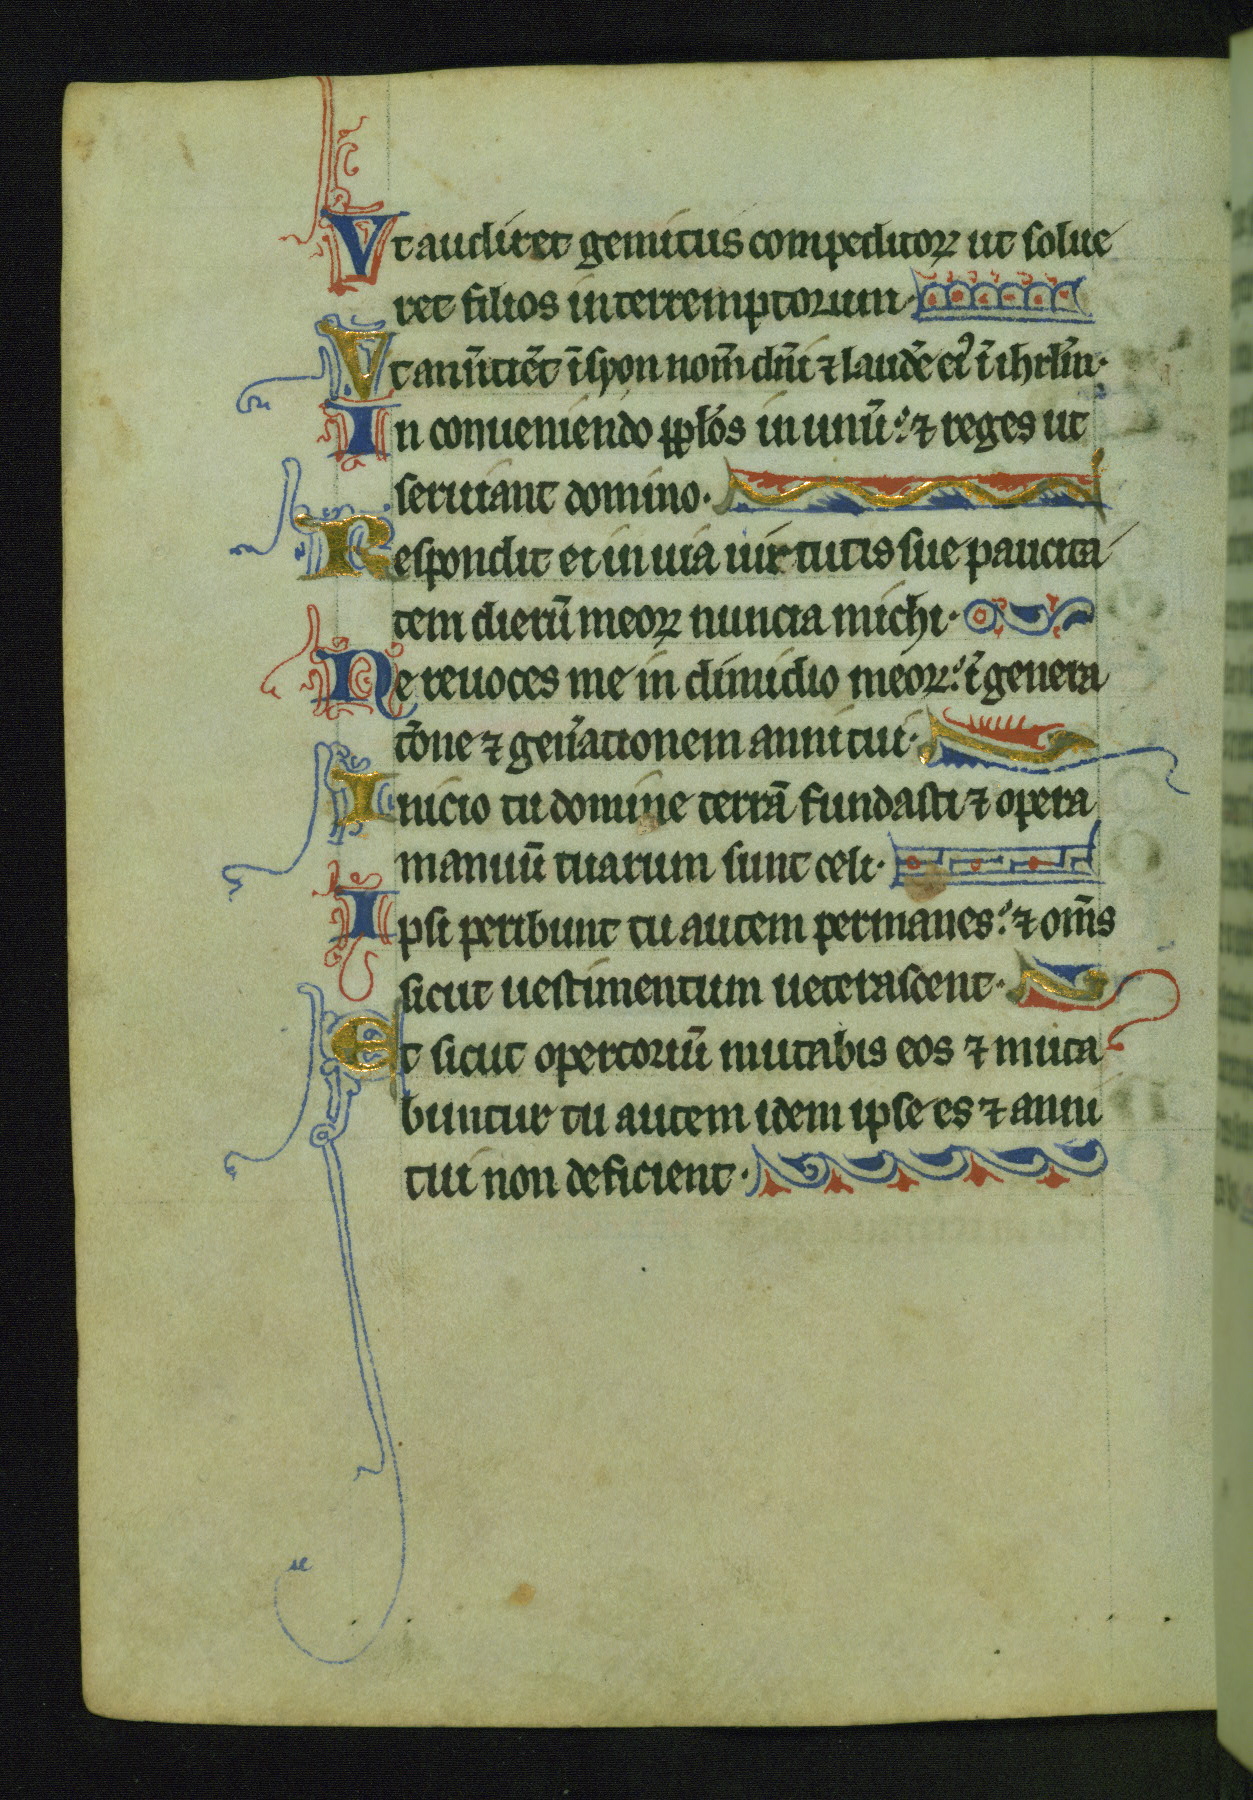 Vt audiret gemitus compeditoꝝ ut solue
ret filios interremptorum·
Vt anūtiēt ī syon nom̄ dn̄i ⁊ laudē eiꝰ ī ihrlm̄·
In conueniendo pplōs in unū: ⁊ reges ut
seruiant domino·
Respondit ei in uia uirtutis sue paucita
tem dierū meoꝝ nuncia michi·
Ne reuoces me in dimidio meoꝝ: ī genera
tōne ⁊ gen̄ationem anni tui·
Inicio tu domine terrā fundasti ⁊ opera
manuū tuarum sunt celi·
Ipsi peribunt tu autem permanes: ⁊ om̄s
sicut uestimentum ueterascent·
Et sicut opertoriū mutabis eos ⁊ muta
buntur tu autem idem ipse es ⁊ anni
tui non deficient·